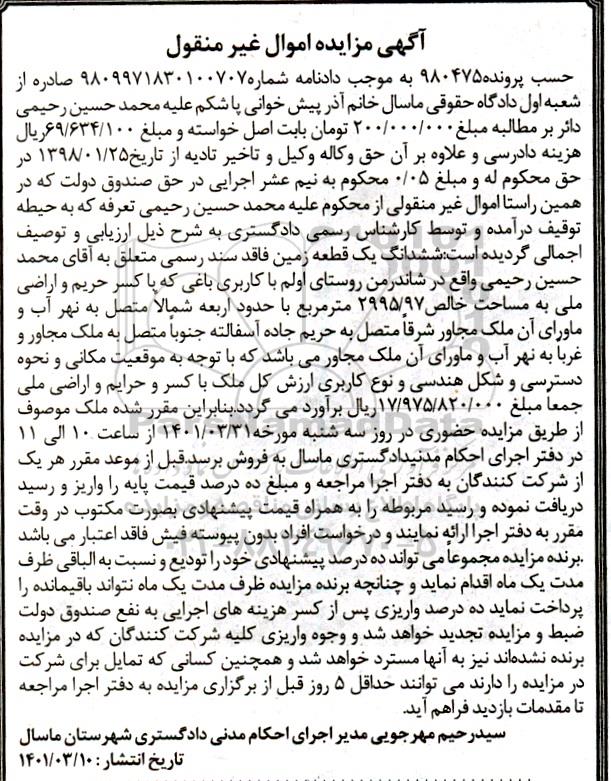 آگهی مزایده اموال غیر منقول
حسب پرونده۹۸۰۴۷۵ به موجب دادنامه شماره۹۸۰۹۹۷۱۸۳۰۱۰۰۷۰۷ صادره از
شعبه اول دادگاه حقوقی ماسال خانم آذر پیش خوانی پاشکم علیه محمد حسین رحیمی
دائر بر مطالبه مبلغ۲۰۰/۰۰۰/۰۰۰ تومان بابت اصل خواسته و مبلغ ۶۹/۶۳۴/۱۰۰ریال
هزینه دادرسی و علاوه بر آن حق وکاله وکیل و تاخیر تادیه از تاریخ۱۳۹۸/۰۱/۲۵ در
حق محکوم له و مبلغ ۰/۰۵ محکوم به نیم عشر اجرایی در حق صندوق دولت که در
همین راستا اموال غیر منقولی از محکوم علیه محمد حسین رحیمی تعرفه که به حیطه
توقیف درآمده و توسط کارشناس رسمی دادگستری به شرح ذیل ارزیابی و توصیف
اجمالی گردیده است:ششدانگ یک قطعه زمین فاقد سند رسمی متعلق به آقای محمد
حسین رحیمی واقع در شاندرمن روستای اولم با کاربری باغی که با کسر حریم و اراضی
ملی به مساحت خالص۲۹۹۵/۹۷ مترمربع با حدود اربعه شمالاً متصل به نهر آب و
ماورای آن ملک مجاور شرقاً متصل به حریم جاده آسفالته جنوباً متصل به ملک مجاور و
غرباً به نهر آب و ماورای آن ملک مجاور می باشد که با توجه به موقعیت مکانی و نحوه
دسترسی و شکل هندسی و نوع کاربری ارزش کل ملک با کسر و حرایم و اراضی ملی
جمعا مبلغ ۱۷/۹۷۵/۸۲۰/۰۰۰ریال برآورد می گردد.بنابراین مقرر شده ملک موصوف
از طریق مزایده حضوری در روز سه شنبه مورخه۱۴۰۱/۰۳/۳۱ از ساعت ۱۰ الی ۱۱
در دفتر اجرای احکام مدنیدادگستری ماسال به فروش برسد.قبل از موعد مقرر هر یک
از شرکت کنندگان به دفتر اجرا مراجعه و مبلغ ده درصد قیمت پایه را واریز و رسید
دریافت نموده و رسید مربوطه را به همراه قیمت پیشنهادی بصورت مکتوب در وقت
مقرر به دفتر اجرا ارائه نمایند و درخواست افراد بدون پیوسته فیش فاقد اعتبار می باشد
.برنده مزایده مجموعا می تواند ده درصد پیشنهادی خود را تودیع و نسبت به الباقی ظرف
مدت یک ماه اقدام نماید و چنانچه برنده مزایده ظرف مدت یک ماه نتواند باقیمانده را
پرداخت نماید ده درصد واریزی پس از کسر هزینه های اجرایی به نفع صندوق دولت
ضبط و مزایده تجدید خواهد شد و وجوه واریزی کلیه شرکت کنندگان که در مزایده
برنده نشده‌اند نیز به آنها مسترد خواهد شد و همچنین کسانی که تمایل برای شرکت
در مزایده را دارند می توانند حداقل ۵ روز قبل از برگزاری مزایده به دفتر اجرا مراجعه
تا مقدمات بازدید فراهم آید.
سیدرحیم مهرجویی مدیر اجرای احکام مدنی دادگستری شهرستان ماسال
تاریخ انتشار : ۱۴۰۱/۰۳/۱۰